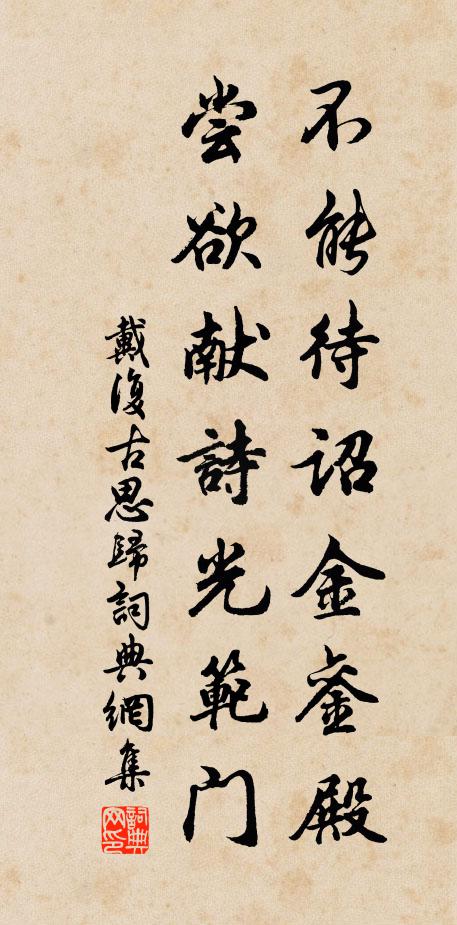 不能待詔金銮殿
尝欲献詩光範门
戴復古思歸詞典網集
詞典网印